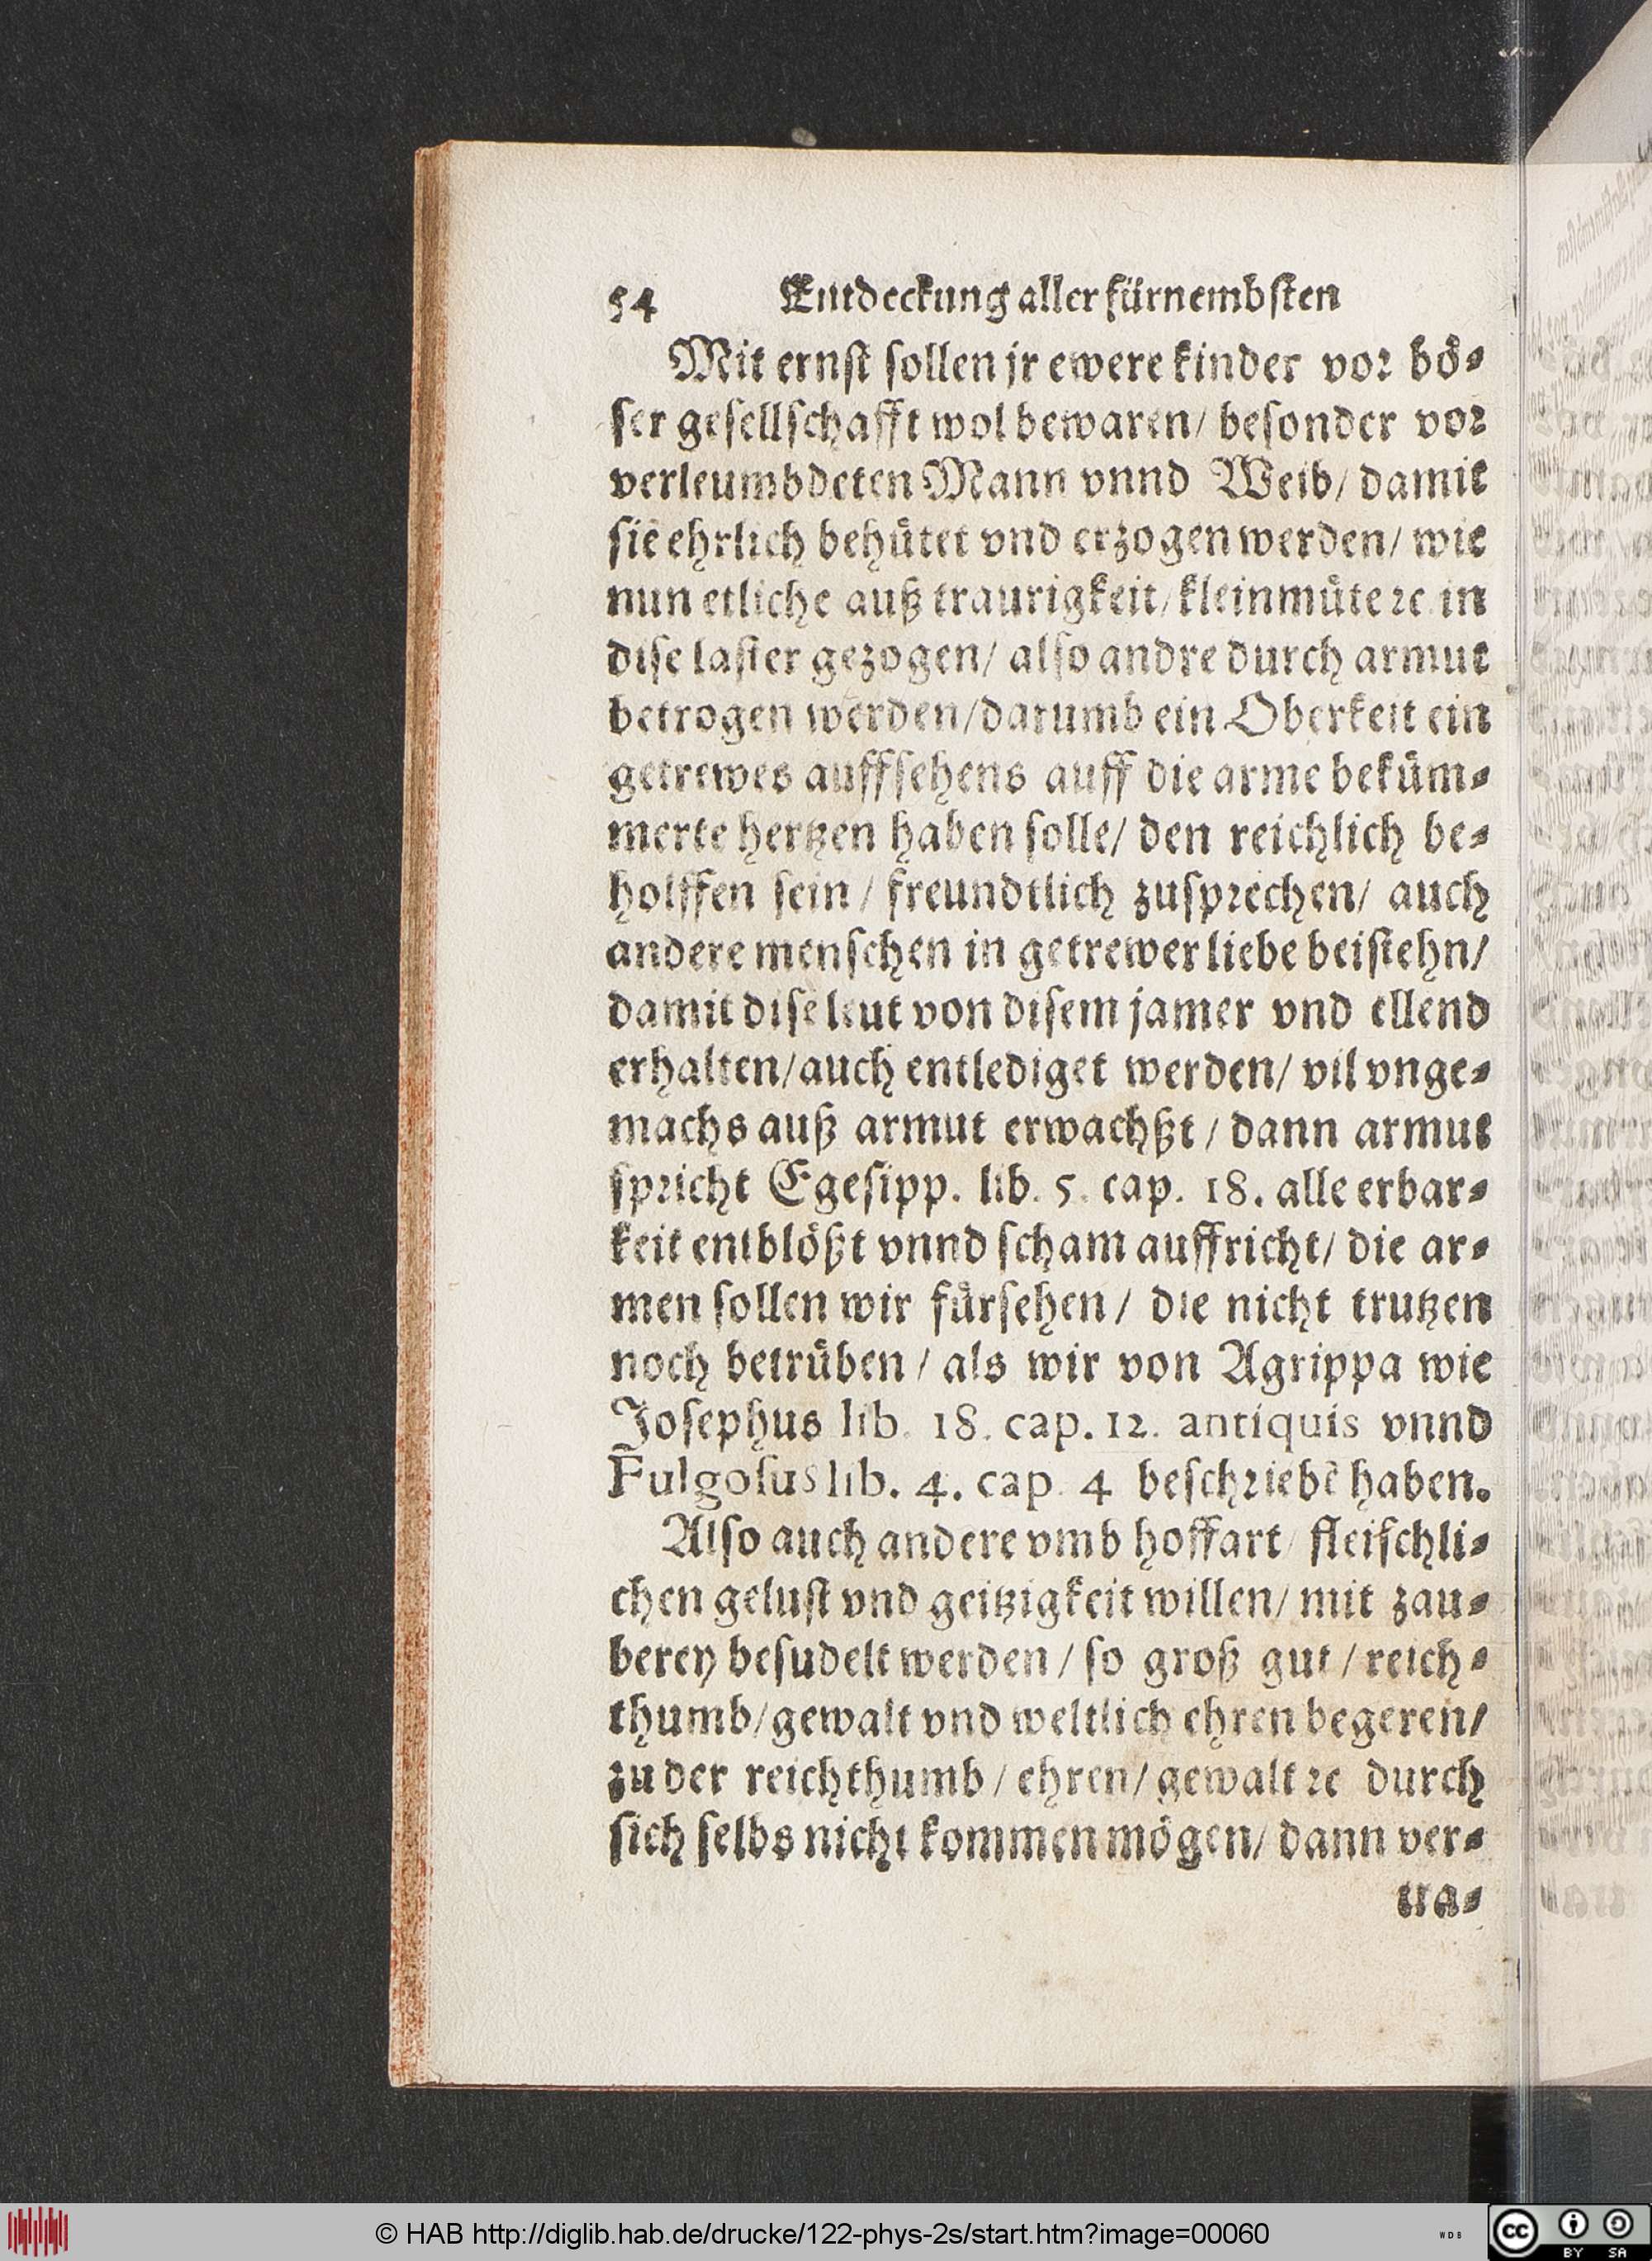 54 Entdeckung aller fürnembsten
Mit ernst sollen jr ewere kinder vor bö⸗
ser gesellschafft wol bewaren/ besonder vor
verleumbdeten Mann vnnd Weib/ damit
sie ehrlich behütet vnd erzogen werden/ wie
nun etliche auß traurigkeit/ kleinmüte ꝛc. in
dise laster gezogen/ also andre durch armut
betrogen werden/ darumb ein Oberkeit ein
getrewes auffsehens auff die arme beküm⸗
merte hertzen haben solle/ den reichlich be⸗
holffen sein/ freundtlich zusprechen/ auch
andere menschen in getrewer liebe beistehn/
damit dise leut von disem jamer vnd ellend
erhalten/ auch entlediget werden/ vil vnge⸗
machs auß armut erwachßt/ dann armut
spricht Egesipp. lib. 5. cap. 18. alle erbar⸗
keit entblößt vnnd scham auffricht/ die ar⸗
men sollen wir fürsehen/ die nicht trutzen
noch betrüben/ als wir von Agrippa wie
Josephus lib. 18. cap. 12. antiquis vnnd
Fulgosus lib. 4. cap. 4 beschriebē haben.
Also auch andere vmb hoffart/ fleischli⸗
chen gelust vnd geitzigkeit willen/ mit zau⸗
berey besudelt werden/ so groß gut/ reich⸗
thumb/ gewalt vnd weltlich ehren begeren/
zu der reichthumb/ ehren/ gewalt ꝛc durch
sich selbs nicht kommen mögen/ dann ver⸗
na⸗
© HAB http://diglib.hab.de/drucke/122-phys-2s/start.htm?image=00060
WDB
cc BY SA